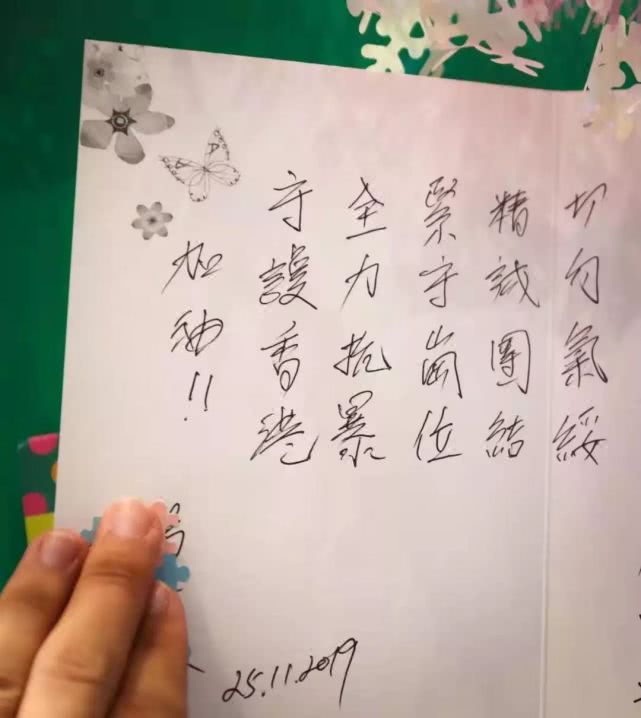 切勿氣綏
精誠團結
緊守崗位
全力抗暴
守護香港
加油!!
25.11.2019